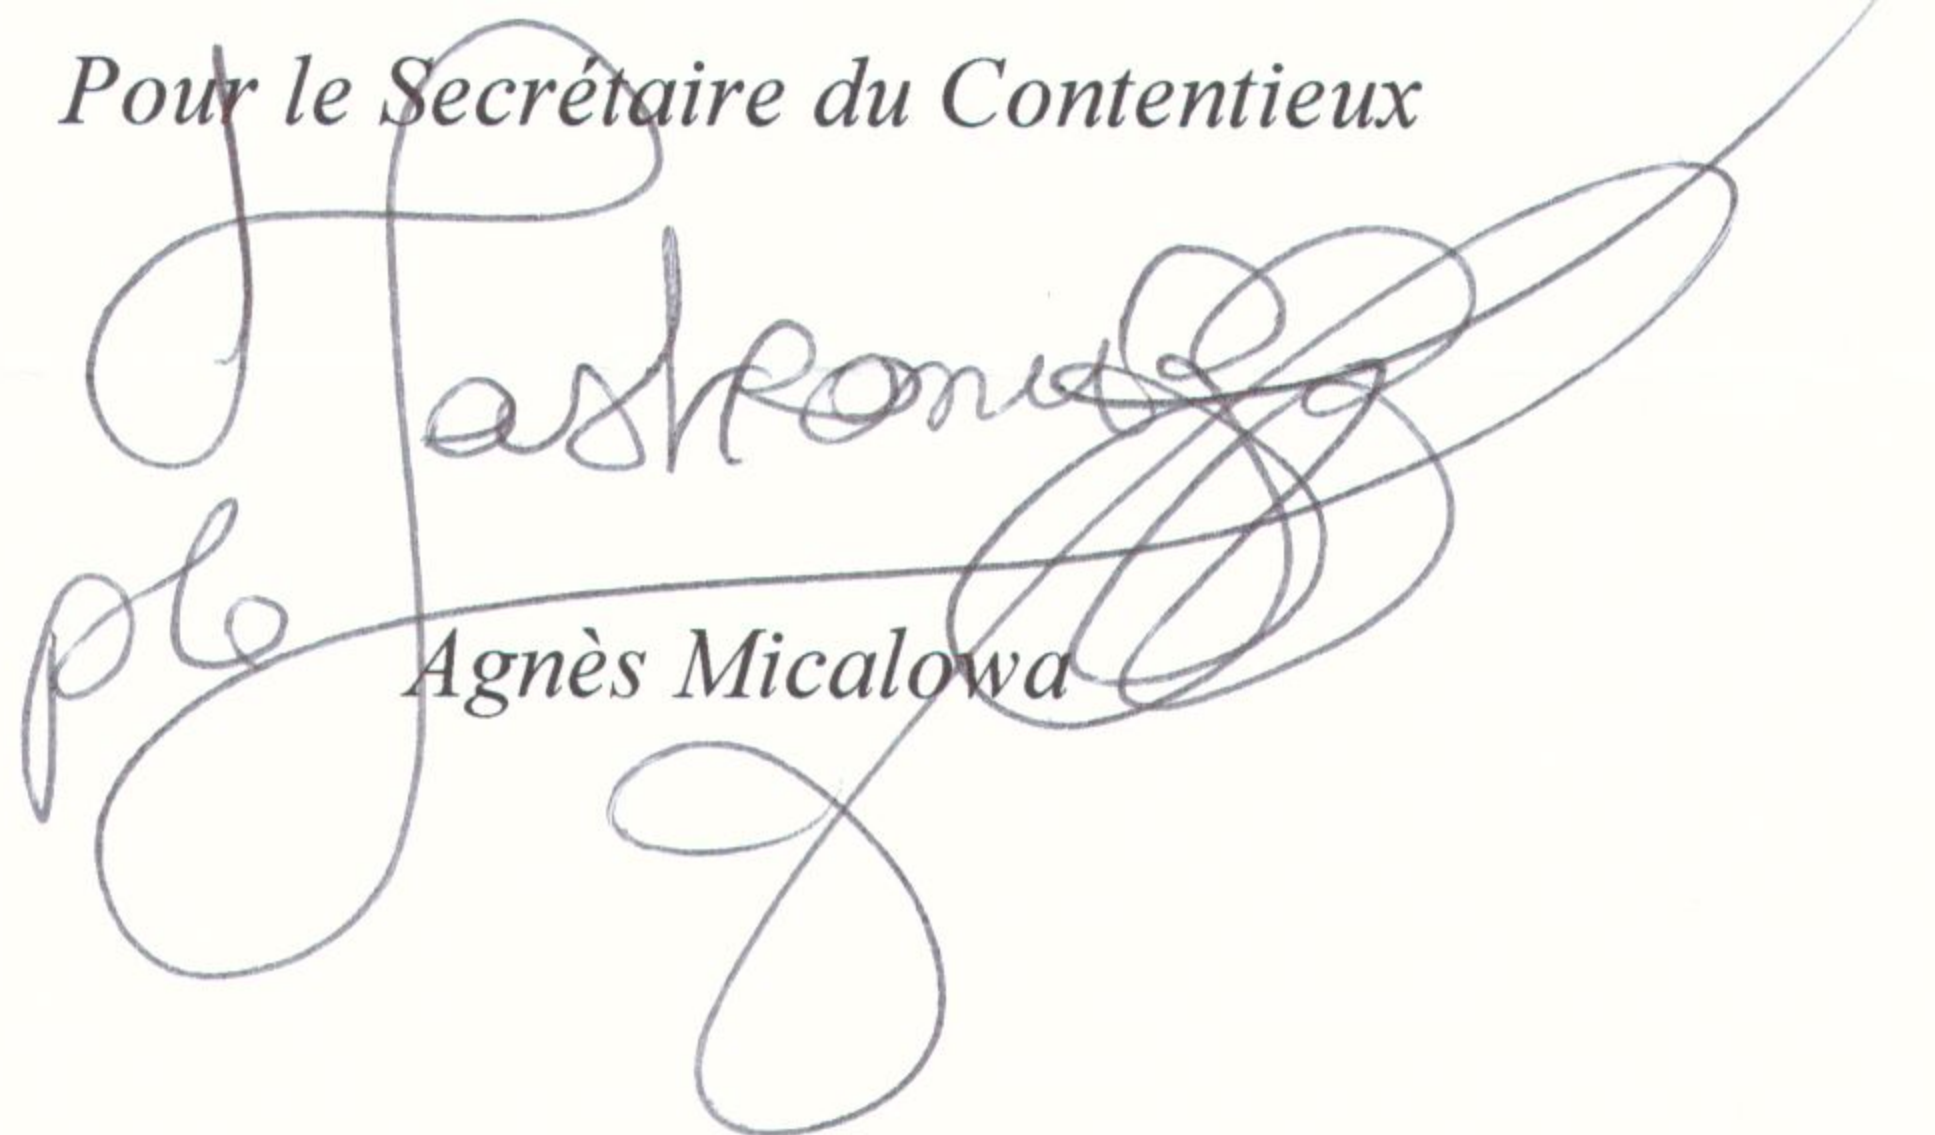 Pour le Secrétaire du Contentieux
ple
Agnès Micalowa